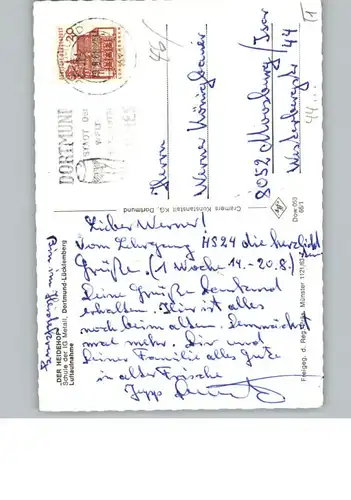 Lieber Werner!
Vom Lehrgang HS24 die herzlichsten
Grüße. (1 Woche 14.-20.8.)
Deine Grüße dankend
erhalten. Hier ist alles
noch beim alten. Demnächst
mal mehr. Dir und
Deiner Familie alles Gute
in alter Frische
Jupp
"DER HEIDEHOF"
Schule der IG Metall, Dortmund-Lücklemberg
Luftaufnahme
Cramers Kunstanstalt KG, Dortmund
Freigeg. d. Reg.
Münster
DORTMUND
STADT DER
20
46/
Herrn
Werner Königbauer
8052 Moosburg/Isar
Westerbergstr 44
44
1